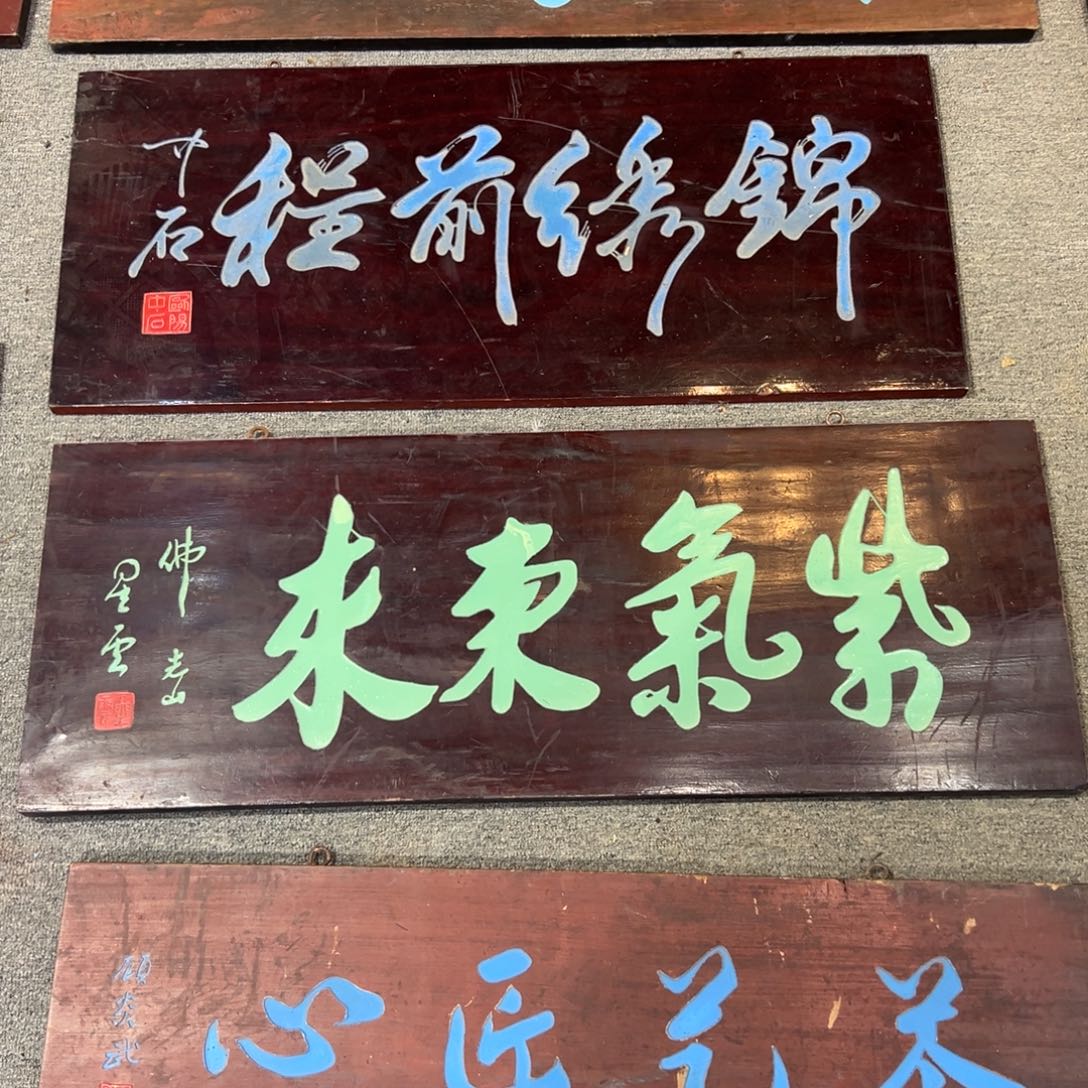 錦绣前程
中石
歐陽中石
紫氣東来
佛光山
星雲
匠心
顧炎武